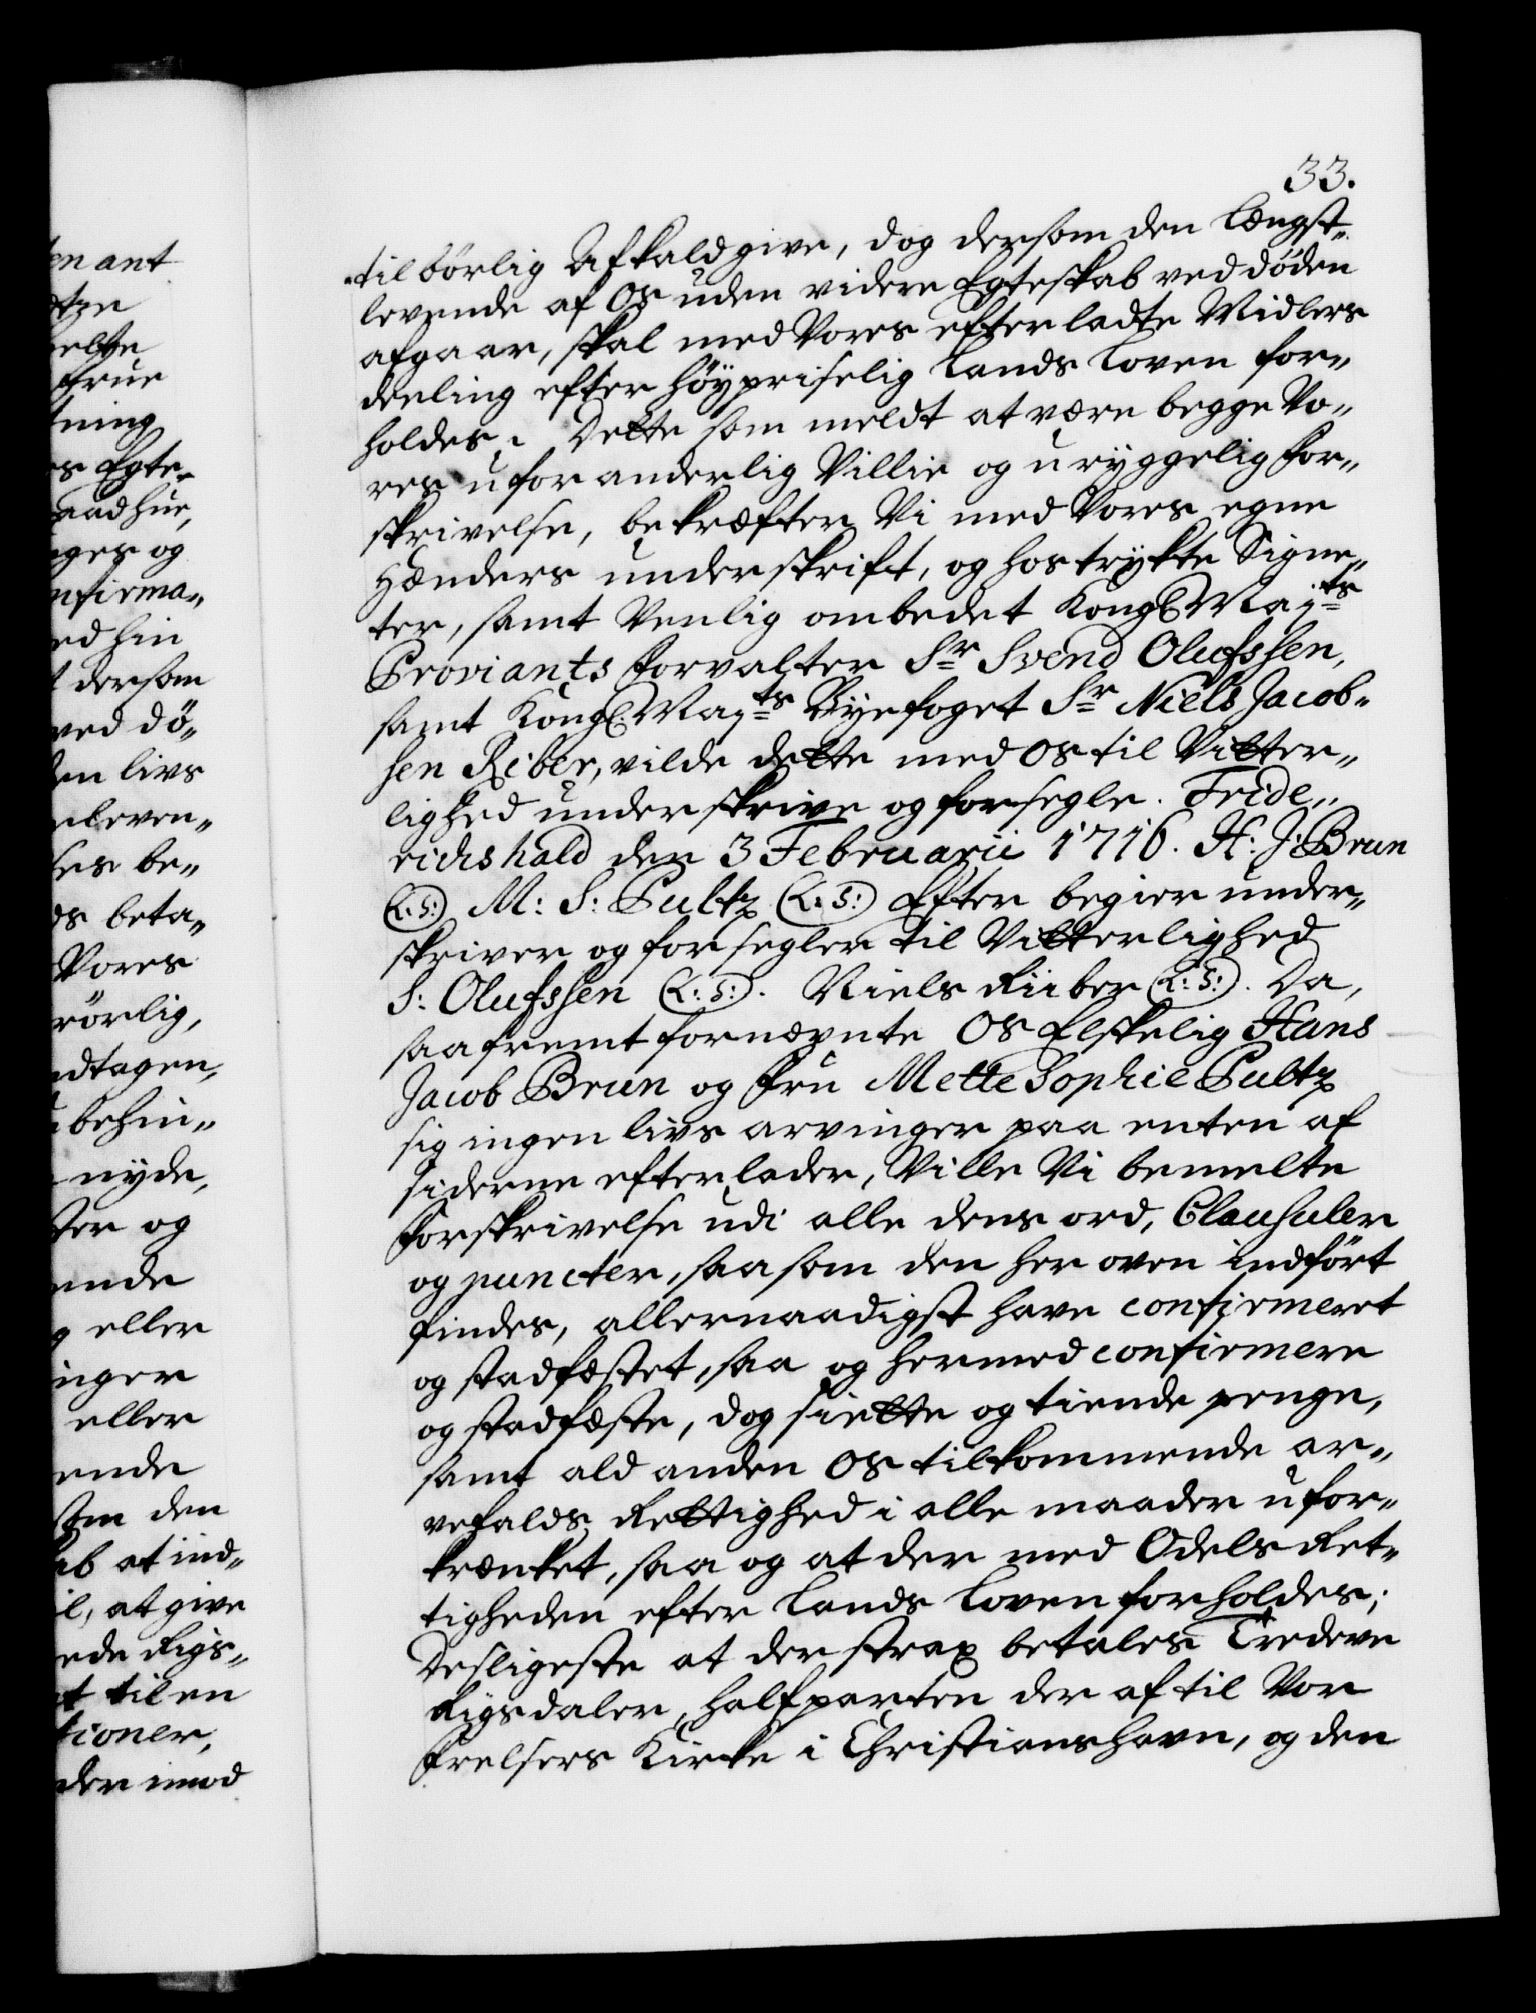 33.
tilbörlig Afkald give, dog dersom den Længst„
levende af Os uden videre Egteskab ved döden
afgaar, skal med Vores efterladte Midlers
deeling efter höypriselig Lands Loven for„
holdes. Dette som meldt at være begge Vo„
res uforanderlig Villie og uryggelig For„
skrivelse, bekræfter Vi med Vores egne
Hænders underskrift, og hostrykte Signe„
ter, samt Venlig ombedet Kongl Maj:ts
Proviants Forvalter Sr Svend Olufssen,
samt Kongl: Maj:ts Byefoget Sr Niels Jacob„
sen Riber, vilde dette med Os til Vitter„
lighed underskrive og forsegle. Fride„
richshald den 3 Februarii 1716. H: J: Brun
(L: S:) M: S: Pultz (L: S:) Efter begier under„
skriver og forsegler til Vitterlighed
S: Olufssen (L: S:). Niels Riiber (L: S:). Da,
saafremt fornævnte Os Elskelig Hans
Jacob Brun og Fru Mette Sophie Pultz
sig ingen livs arvinger paa enten af
siderne efterlader, Ville Vi bemelte
Forskrivelse udi alle dens ord, Clausuler
og puncter, saasom den her oven indfört
findes, allernaadigst have confirmeret
og stadfæstet, saa og hermed confirmere
og stadfæste, dog siette og tiende penge,
samt ald anden Os tilkommende ar„
vefalds Rettighed i alle maader ufor„
krænket, saa og at der med Odels Ret„
tigheden efter Lands Loven forholdes;
Desligeste at der strax betales Tredeve
Rigsdaler, halfparten der af til Vor
Frelsers Kirke i Christianshavn, og den